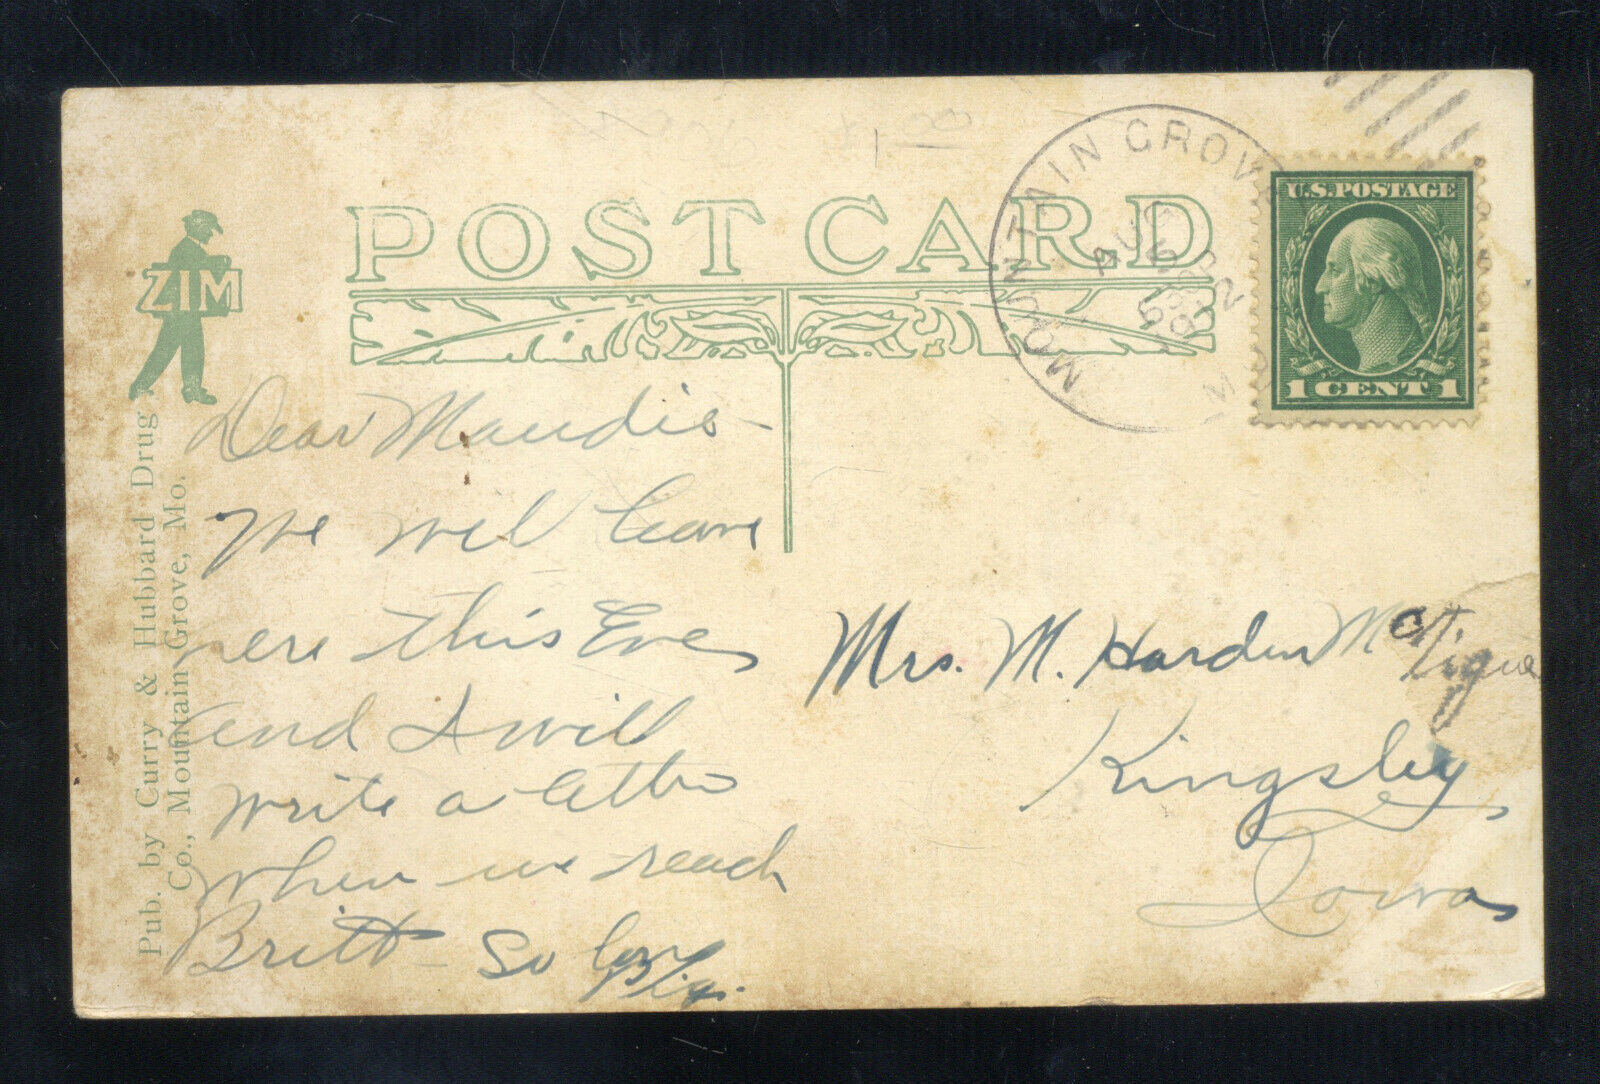 POST CARD
ZIM
Pub. by Curry & Hubbard Drug
Co., Mountain Grove, Mo.
MOUNTAIN GROVE
MO.
AUG
5
1912
U.S. POSTAGE
1 CENT 1
Dear Maudis -
We will leave
here this Eve
and I will
write a letter
when we reach
Britt - So Long
Mrs. M. Hardin McTigue
Kingsley
Iowa